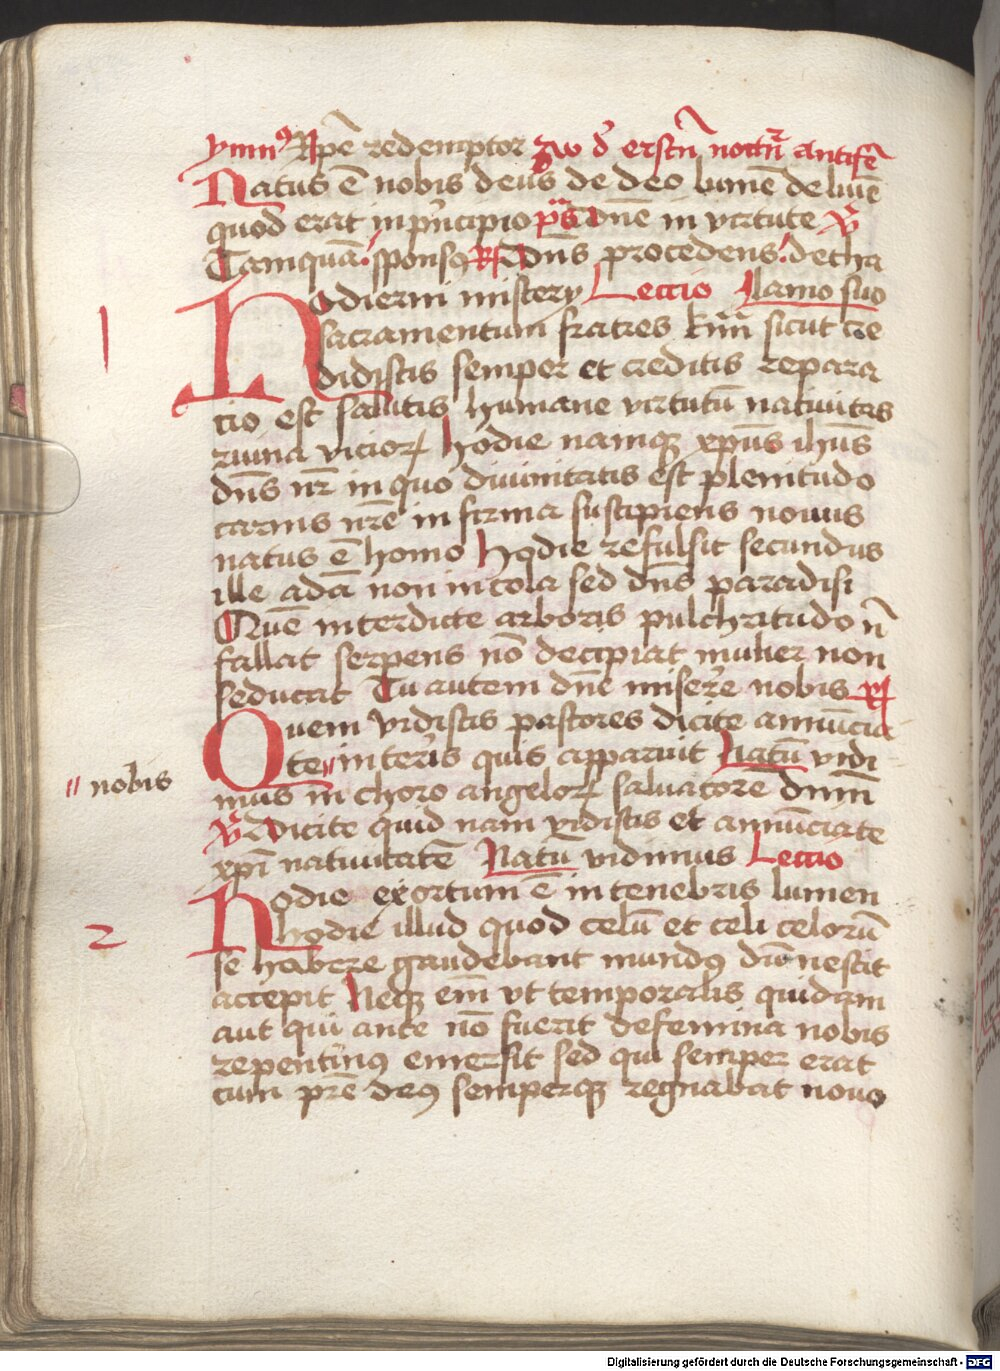 ymnꝰ Xp̄e redemptor zw d' ersten nocturn antifē
Natus ē nobis deus de deo lumē de lumē
quod erat in pͥncipio p̄s Dn̄e in virtute v̄
Tamquā sponsꝰ R Dn̄s procedens de tha
Hodierni mistery Leccio lamo suo
sacramentum fratres kr̄mi sicut cre
didistis semper et creditis repara
tio est salutis humane virtutū natiuitas
ruina vicioꝝ hodie namqꝫ xp̄us ihūs
dn̄s nr̄ in quo diuinitatis est plenitudo
carnis nr̄e infirma suscipiens nouus
natus ē homo hodie refulsit secundus
ille adā non incola sed dn̄s paradisi
Quē interdicte arboris pulchritudo n̄
fallat serpens nō decipiat mulier non
seducat Tu autem dn̄e miserͤe nobis R
Quem vidistis pastores dicite annūcia
te〃in terris quis apparuit Natū vidi
〃 nobis
mus in choro angeloꝝ saluatorē dnm̄
v̄ Dicite quid nam vidistis et annūciate
xp̄i natiuitatē Natū vidimus Leccio
Hodie exortum ē in tenebris lumen
2
hodie illud quod celū et celi celorū
se habere gaudebant mundꝰ diu nescit
accepit Neqꝫ em̄ vt temporalis quidam
aut qui ante nō fuerit de femina nobis
repentinꝰ emersit sed qui semper erat
cum pr̄e deꝰ semperqꝫ regnabat nouo
Digitalisierung gefördert durch die Deutsche Forschungsgemeinschaft - DFG